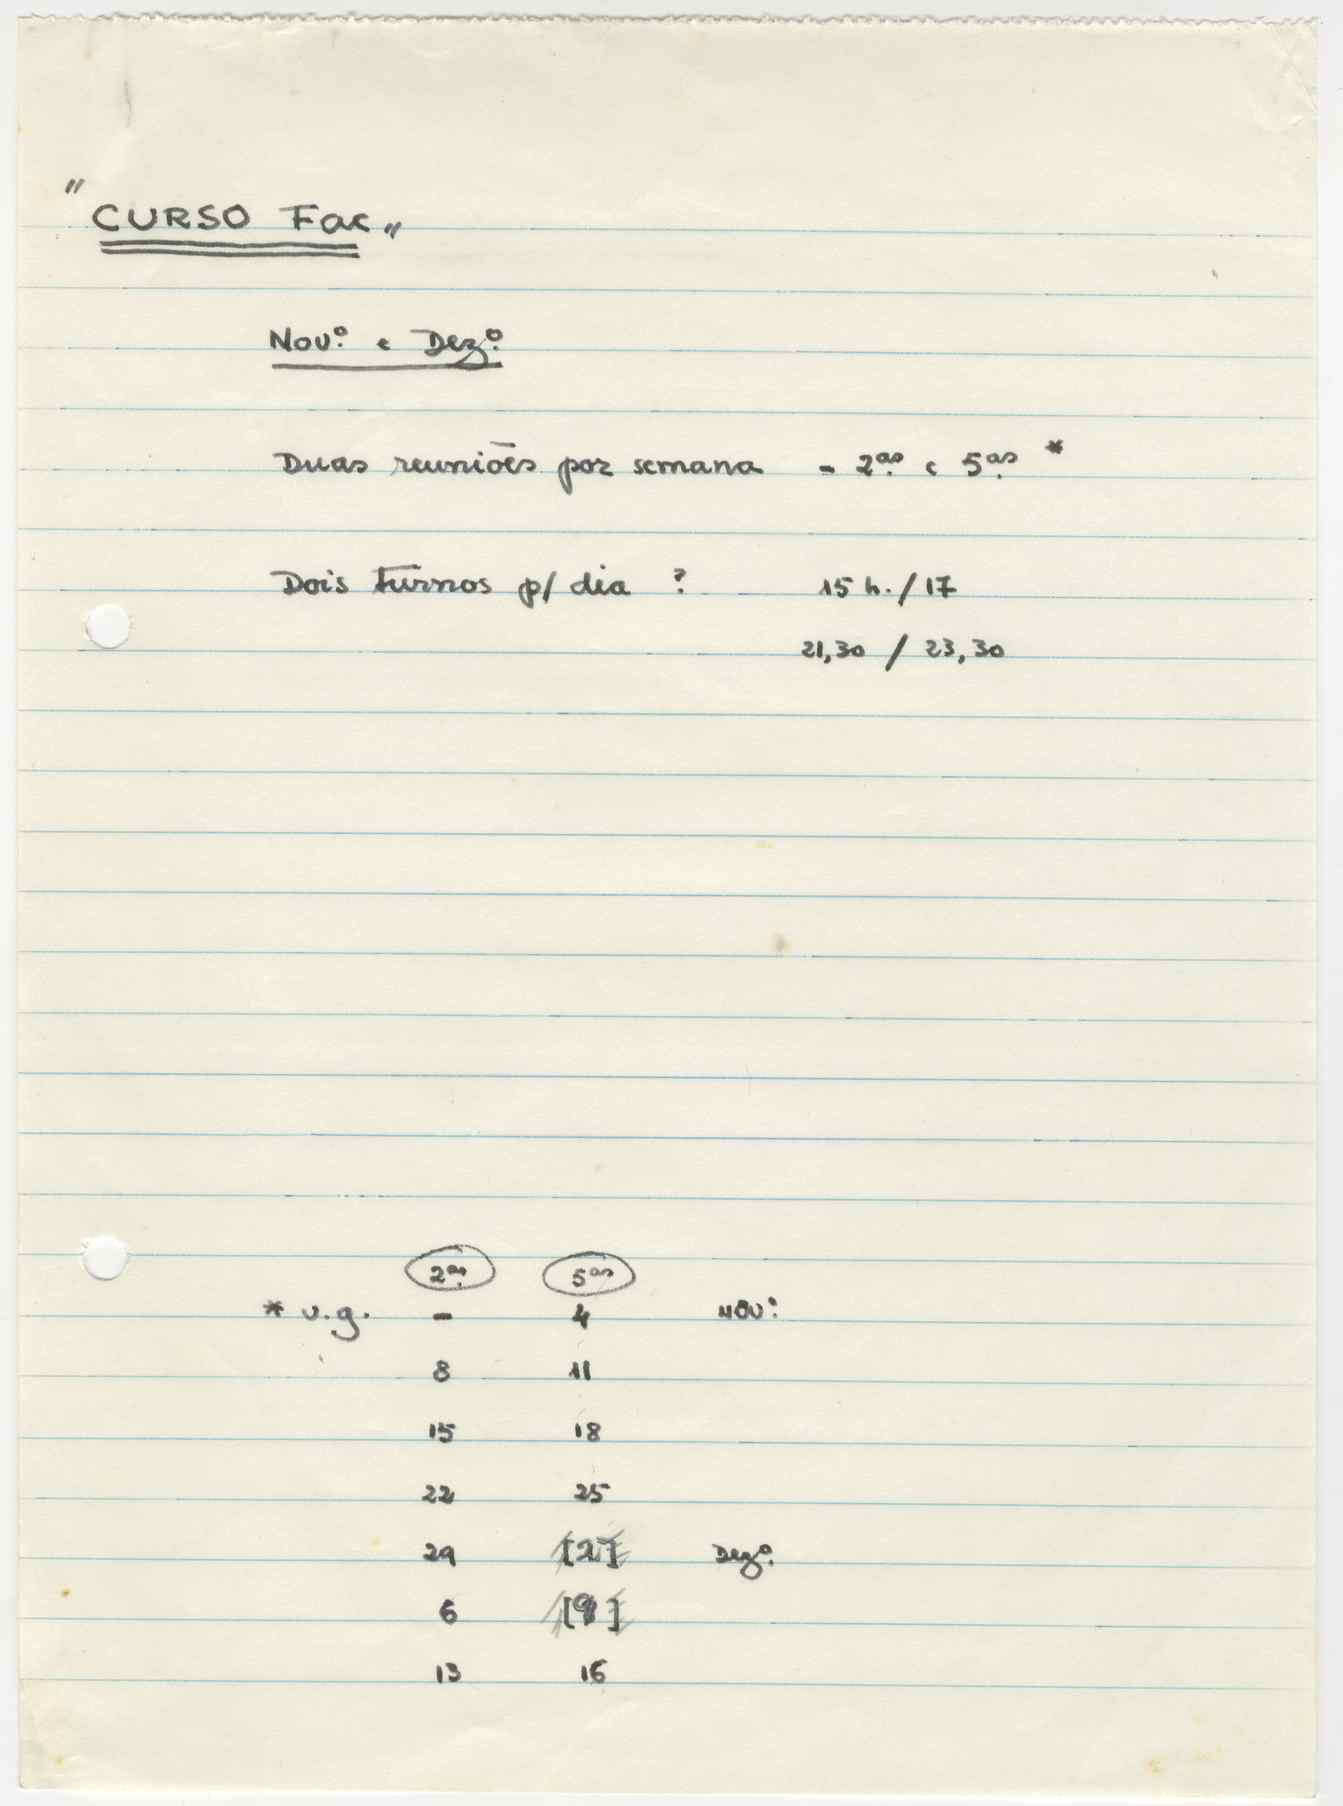 "CURSO Fac"
Nov.º e Dez.º
Duas reuniões por semana - 2.as e 5.as *
Dois turnos p/ dia ? 15 h. / 17
21,30 / 23,30
2.as 5as
* v.g. - 4 Nov.º
8 11
15 18
22 25
29 [2] Dez.º
6 [9]
13 16